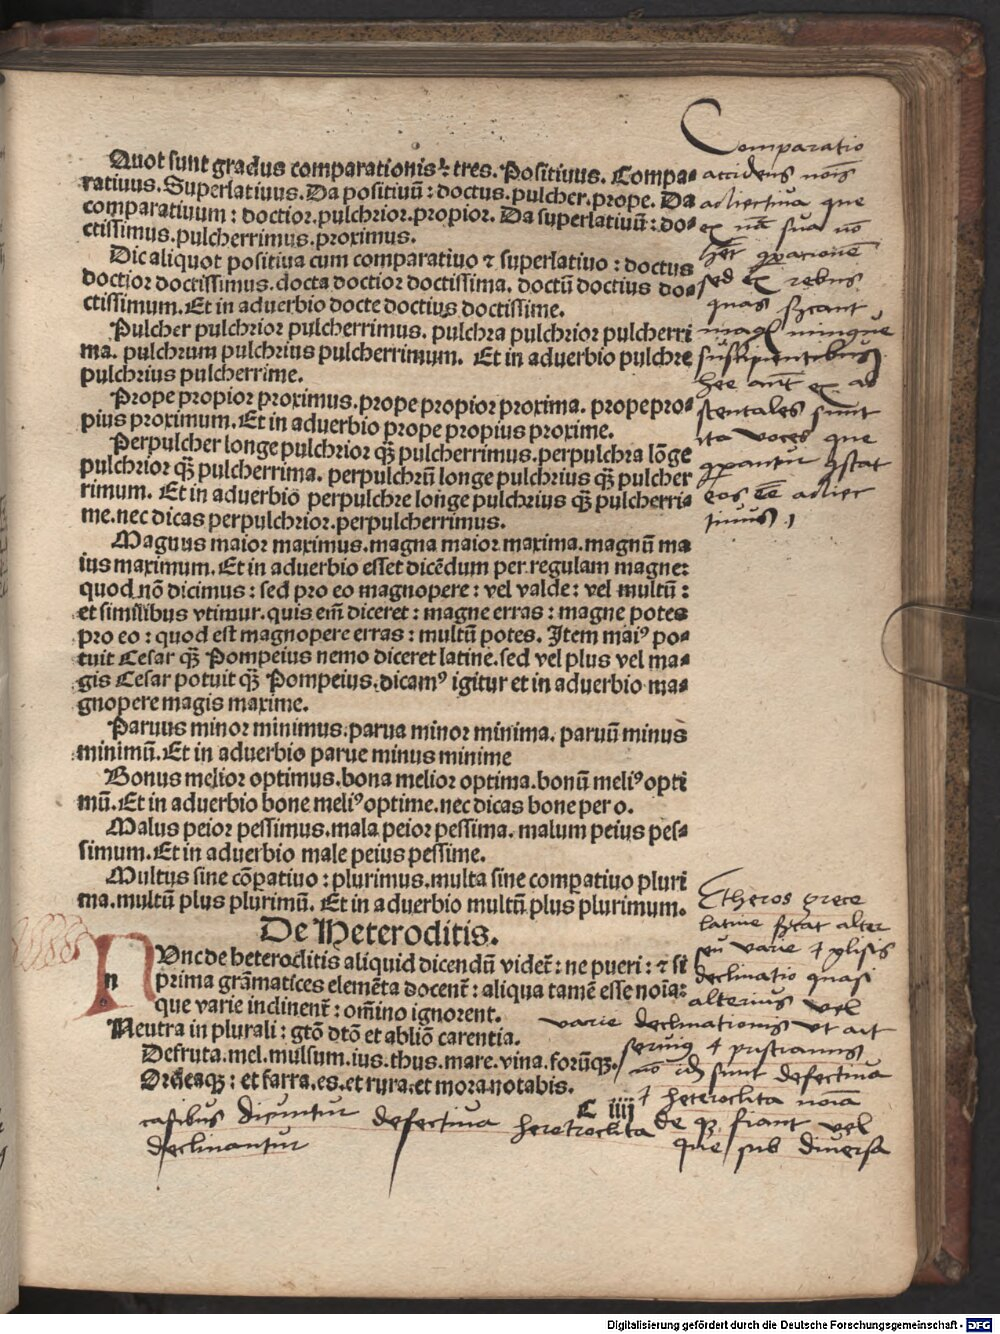 Quot sunt gradus comparationis? tres. Positiuus. Compa-
ratiuus. Superlatiuus. Da positiuū: doctus. pulcher. prope. Da
comparatiuum: doctior. pulchrior. propior. Da superlatiuū: do-
ctissimus. pulcherrimus. proximus.
Dic aliquot positiua cum comparatiuo ⁊ superlatiuo: doctus
doctior doctissimus. docta doctior doctissima. doctū doctius do-
ctissimum. Et in aduerbio docte doctius doctissime.
Pulcher pulchrior pulcherrimus. pulchra pulchrior pulcherri
ma. pulchrum pulchrius pulcherrimum. Et in aduerbio pulchre
pulchrius pulcherrime.
Prope propior proximus. prope propior proxima. prope pro-
pius proximum. Et in aduerbio prope propius proxime.
Perpulcher longe pulchrior qȝ pulcherrimus. perpulchra lōge
pulchrior qȝ pulcherrima. perpulchrū longe pulchrius qȝ pulcher
rimum. Et in aduerbio perpulchre longe pulchrius qȝ pulcherri-
me. nec dicas perpulchrior. perpulcherrimus.
Magnus maior maximus. magna maior maxima. magnū ma
ius maximum. Et in aduerbio esset dicēdum per regulam magne:
quod nō dicimus: sed pro eo magnopere: vel valde: vel multū:
et similibus vtimur. quis em̄ diceret: magne erras: magne potes
pro eo: quod est magnopere erras: multū potes. Item maiꝰ po-
tuit Cesar qȝ Pompeius nemo diceret latine. sed vel plus vel ma-
gis Cesar potuit qȝ Pompeius. dicamꝰ igitur et in aduerbio ma-
gnopere magis maxime.
Paruus minor minimus. parua minor minima. paruū minus
minimū. Et in aduerbio parue minus minime
Bonus melior optimus. bona melior optima. bonū meliꝰ opti
mū. Et in aduerbio bone meliꝰ optime. nec dicas bone pero.
Malus peior pessimus. mala peior pessima. malum peius pes-
simum. Et in aduerbio male peius pessime.
Multus sine cōpatiuo: plurimus. multa sine compatiuo pluri
ma. multū plus plurimū. Et in aduerbio multū plus plurimum.
De Heteroclitis.
NVnc de heteroclitis aliquid dicendū videt̄: ne pueri: ⁊ si
n
prima grāmatices elemēta docent̄: aliqua tamē esse noīa:
que varie inclinent̄: om̄ino ignorent.
Neutra in plurali: gtō dtō et ablīō carentia.
Defruta. mel. mulsum. ius. thus. mare. vina. forūqȝ.
Ordeaqȝ: et farra. es. et rura. et mora notabis.
C iiij
Comparatio
accidens nōis
adiectiua que
ex nā sua nō
sed ex rebus
quas
suscipientibus
sunt
ita voces que
Etheros grece
latine alter
seu varie
declinatio quasi
alterius vel
varie declinationis vt ait
seruius ⁊ priscianus
sunt defectiua
⁊ heteroclita noīa
casibus dicuntur defectiua heteroclita de fiant vel
declinantur que sub diuersa
Digitalisierung gefördert durch die Deutsche Forschungsgemeinschaft - DFG